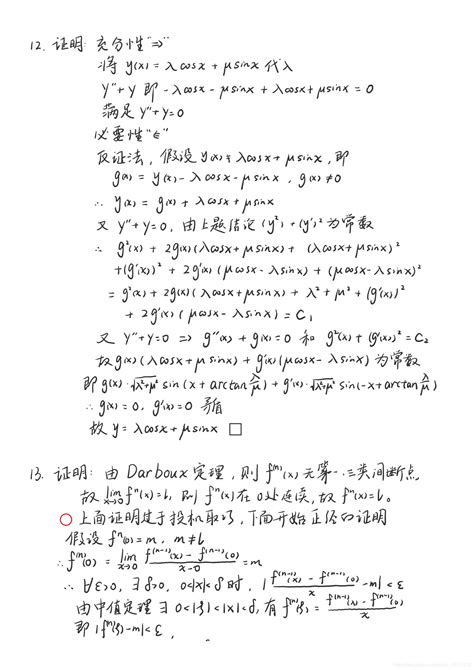 12. 证明: 充分性"⇒"
将 y(x) = λcosx + μsinx 代入
y''+y 即 -λcosx - μsinx + λcosx + μsinx = 0
满足 y''+y=0
必要性"⇐"
反证法, 假设 y(x) ≠ λcosx + μsinx, 即
g(x) = y(x) - λcosx - μsinx, g(x) ≠ 0
∴ y(x) = g(x) + λcosx + μsinx
又 y''+y=0, 由上题结论 (y²)+(y')² 为常数
∴ g²(x) + 2g(x)(λcosx+μsinx) + (λcosx+μsinx)²
+(g'(x))² + 2g'(x)(μcosx-λsinx) + (μcosx-λsinx)²
= g²(x) + 2g(x)(λcosx+μsinx) + λ²+μ²+(g'(x))²
+ 2g'(x)(μcosx-λsinx) = C₁
又 y''+y=0 ⇒ g''(x)+g(x)=0 和 g²(x)+(g'(x))²=C₂
故 g(x)(λcosx+μsinx)+g'(x)(μcosx-λsinx) 为常数
即 g(x)·√λ²+μ² sin(x+arctan λ/μ) + g'(x)·√λ²+μ² sin(-x+arctan μ/λ)
∴ g(x)=0, g'(x)=0 矛盾
故 y = λcosx+μsinx □
13. 证明: 由 Darboux 定理, 则 f⁽ⁿ⁾(x) 无第一、三类间断点
故 lim x→0 fⁿ(x)=l, 则 fⁿ(x) 在 0 处连续, 故 fⁿ(x)=l。
○ 上面证明过于投机取巧, 下面开始正经的证明
假设 fⁿ(0)=m, m≠l
∴ f⁽ⁿ⁾(0) = lim x→0 f⁽ⁿ⁻¹⁾(x) - f⁽ⁿ⁻¹⁾(0) / x-0 = m
∴ ∀ε>0, ∃δ>0, 0<|x|<δ 时, | f⁽ⁿ⁻¹⁾(x) - f⁽ⁿ⁻¹⁾(0) / x - m| < ε
由中值定理 ∃ 0<|ξ|<|x|<δ, 有 f⁽ⁿ⁾(ξ) = f⁽ⁿ⁻¹⁾(x) - f⁽ⁿ⁻¹⁾(0) / x
即 |fⁿ(ξ)-m|<ε,